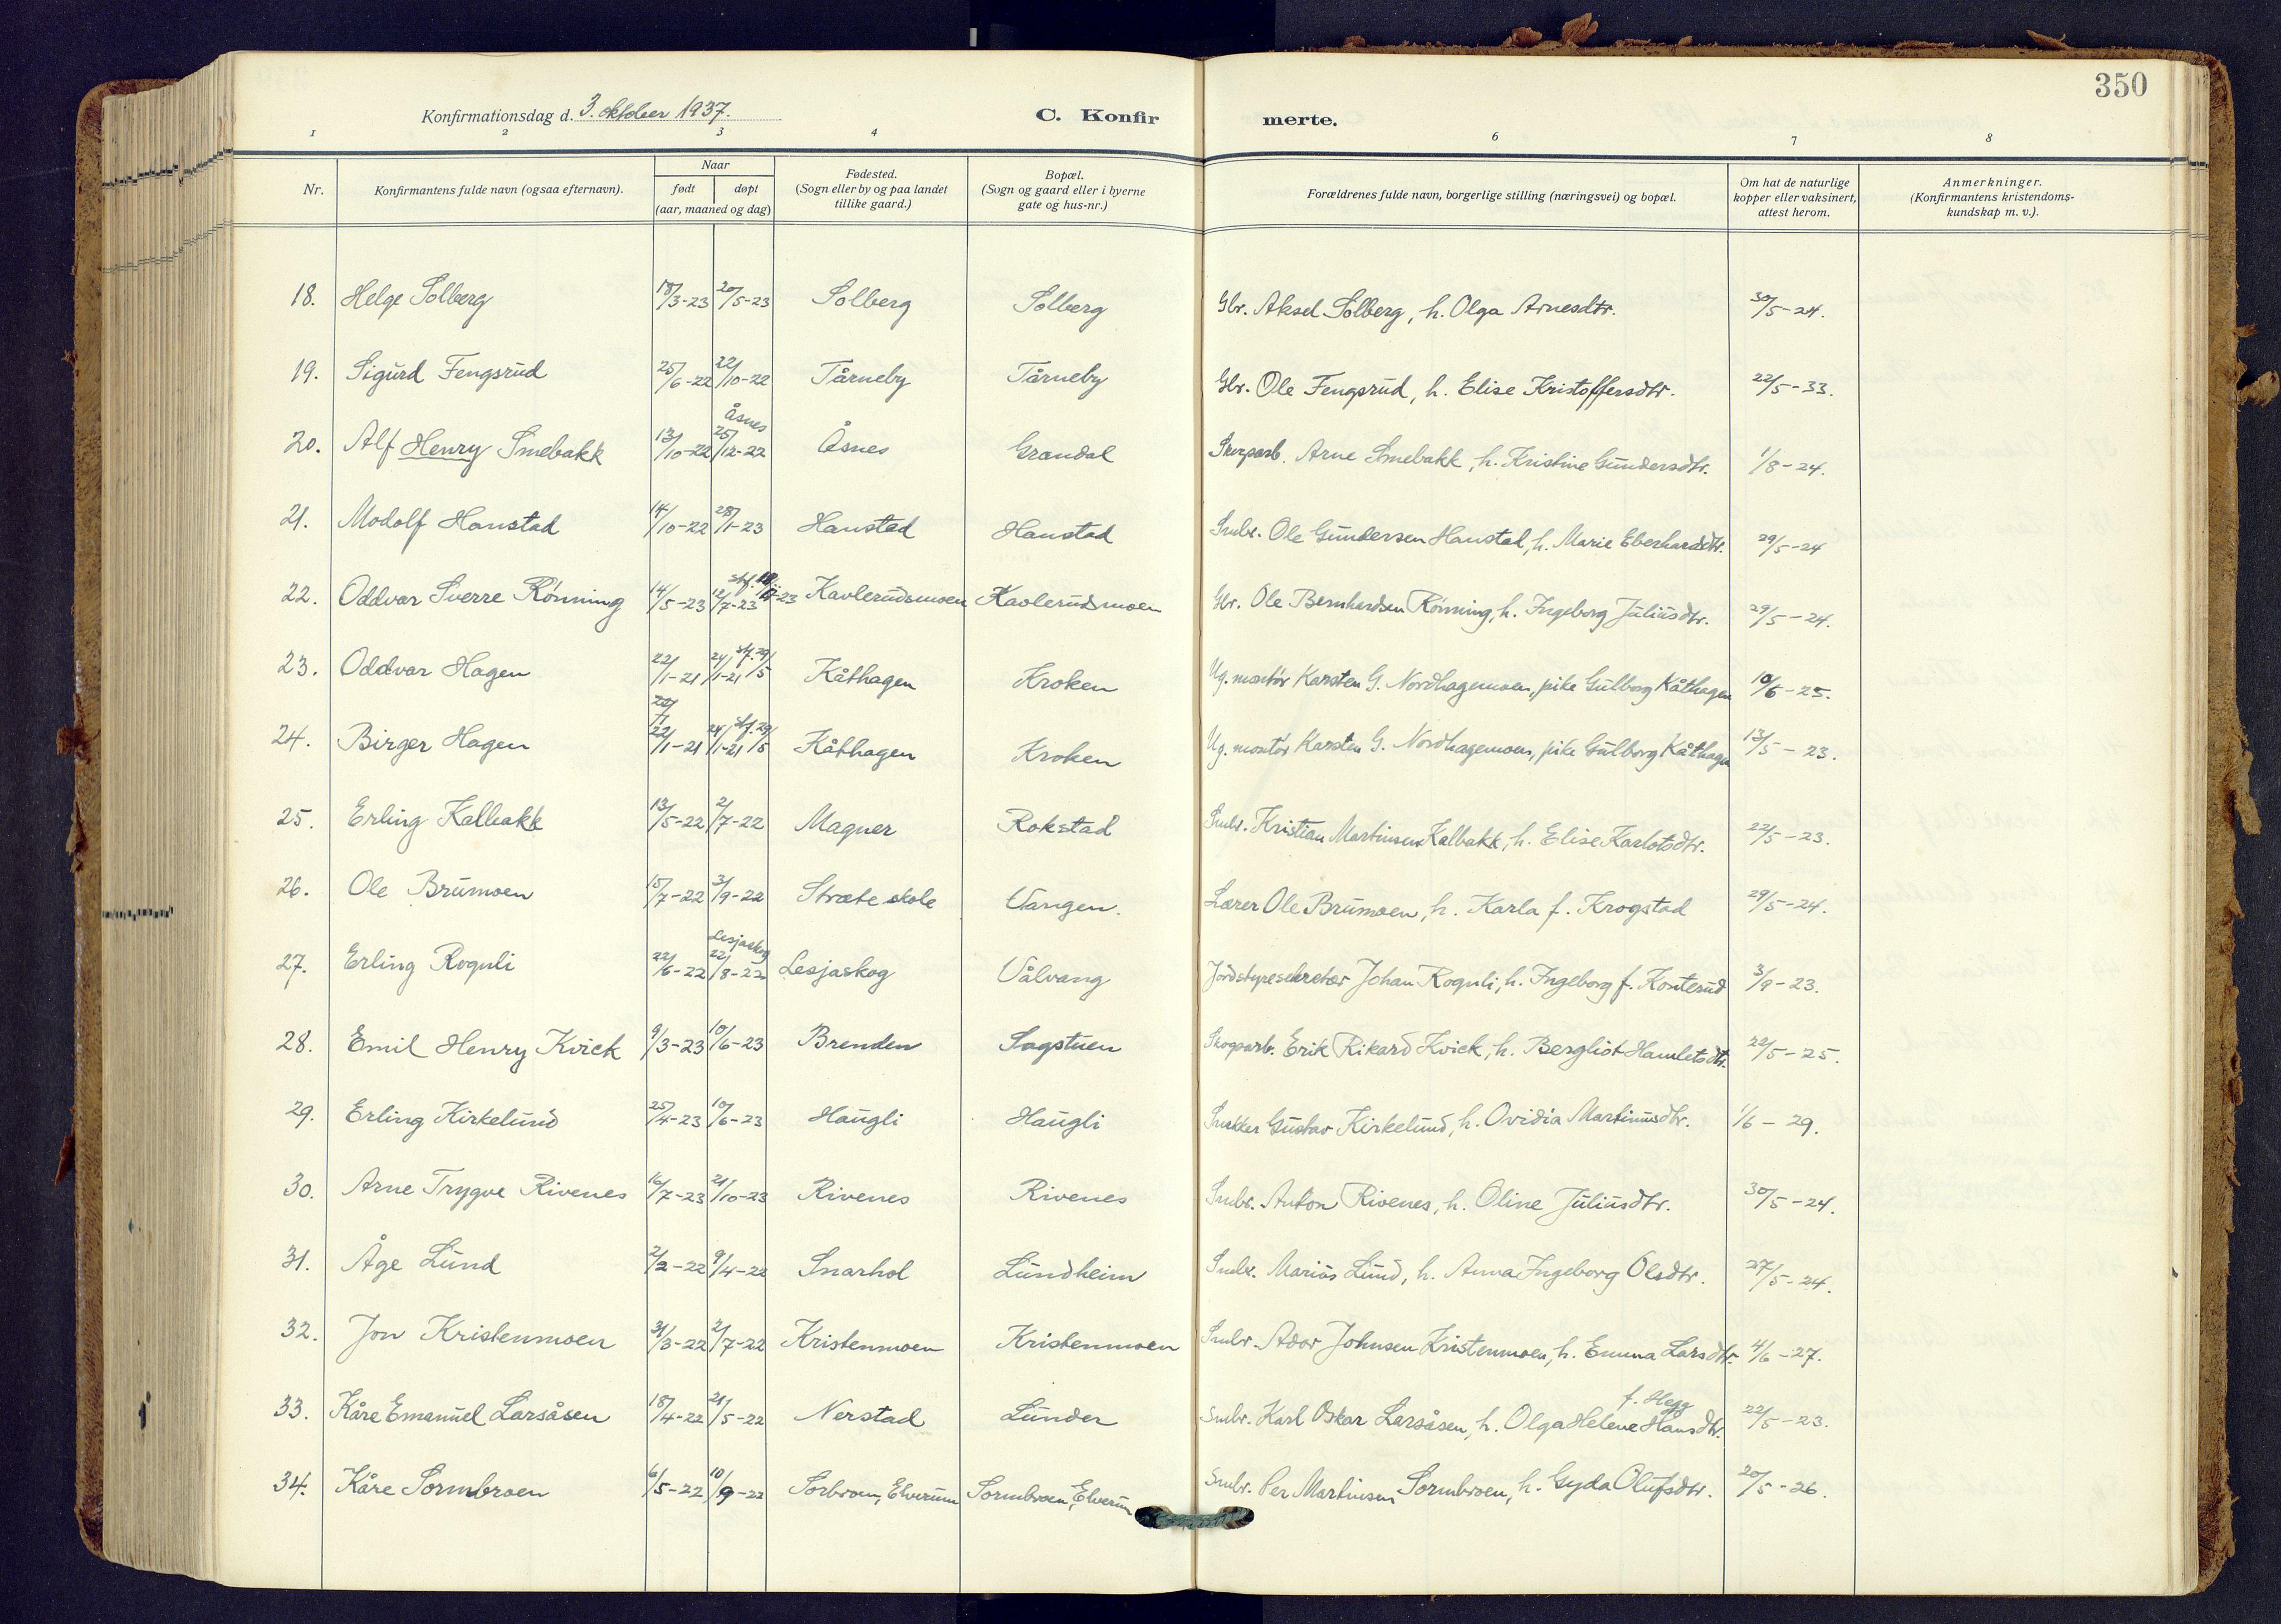 350
Konfirmationsdag d. 3. oktober 1937.
C. Konfirmerte.
1 2 3 4 6 7 8
Nr. Konfirmantens fulde navn (ogsaa efternavn). Naar født døpt (aar, maaned og dag) Fødested. (Sogn eller by og paa landet tillike gaard.) Bopæl. (Sogn og gaard eller i byerne gate og hus-nr.) Forældrenes fulde navn, borgerlige stilling (næringsvei) og bopæl. Om hat de naturlige kopper eller vaksinert, attest herom. Anmerkninger. (Konfirmantens kristendoms-kundskap m. v.).
18. Helge Solberg 18/3-23 20/5-23 Solberg Solberg Gbr. Aksel Solberg, h. Olga Arnesdtr. 30/5-24.
19. Sigurd Fengsrud 25/6-22 22/10-22 Tårneby Tårneby Gbr. Ole Fengsrud, h. Elise Kristoffersdtr. 22/5-33.
20. Alf Henry Smebakk 13/10-22 Åsnes 25/12-22 Åsnes Grandal Skogsarb. Arne Smebakk, h. Kristine Gundersdtr. 1/8-24.
21. Modolf Hanstad 14/10-22 28/1-23 Hanstad Hanstad Smbr. Ole Gundersen Hanstad, h. Marie Eberharddtr. 29/5-24
22. Oddvar Sverre Rønning 14/5-23 12/7-23 stf. -23 Kavlerudsmoen Kavlerudsmoen Gbr. Ole Bernhardsen Rønning, h. Ingeborg Juliusdtr. 29/5-24.
23. Oddvar Hagen 22/1-21 24/1-21 stf. 29/5 Kåthagen Kroken Ug. montør Karsten G. Nordhagemoen, pike Gulborg Kåthagen 10/6-25.
24. Birger Hagen 22/1-21 24/1-21 stf. 29/5 Kåthagen Kroken Ug. montør Karsten G. Nordhagemoen, pike Gulborg Kåthagen 13/5-23.
25. Erling Kalbakk 13/5-22 2/7-22 Magner Rokstad Smbr. Kristian Martinsen Kalbakk, h. Elise Karlotsdtr. 22/5-23.
26. Ole Brumoen 15/7-22 3/9-22 Stræte skole Vangen. Lærer Ole Brumoen, h. Karla f. Krogstad 29/5-24.
27. Erling Rognli 22/6-22 Lesjaskog 22/8-22 Lesjaskog Vålvang Jordstyresekretær Johan Rognli, h. Ingeborg f. Konterud 3/9-23.
28. Emil Henry Kvick 9/3-23 10/6-23 Brenden Sagstuen Skogsarb. Erik Rikard Kvick, h. Bergliot Hamletsdtr. 22/5-25.
29. Erling Kirkelund 25/4-23 10/6-23 Haugli Haugli Snekker Gustav Kirkelund, h. Ovidia Martinusdtr. 1/6-29.
30. Arne Trygve Rivenes 16/7-23 21/10-23 Rivenes Rivenes Smbr. Anton Rivenes, h. Oline Juliusdtr. 30/5-24.
31. Åge Lund 2/2-22 9/4-22 Snarhol Lundheim Smbr. Marius Lund, h. Anna Ingeborg Olsdtr. 27/5-24.
32. Jon Kristenmoen 31/3-22 2/7-22 Kristenmoen Kristenmoen Smbr. Ador Johnsen Kristenmoen, h. Emma Larsdtr. 4/6-27.
33. Kåre Emanuel Larsåsen 18/4-22 21/5-22 Nerstad Lunder Smbr. Karl Oskar Larsåsen, h. Olga Helene Hansdtr. f. Hegg 22/5-23.
34. Kåre Sormbroen 6/5-22 10/9-22 Sorbroen, Elverum Sormbroen, Elverum Smbr. Per Martinsen Sormbroen, h. Gyda Olufsdtr. 20/5-26.